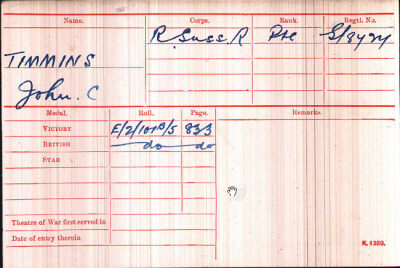 Name. Corps. Rank. Regtl. No.
TIMMINS R. Suss. R Pte
John. C
Medal. Roll. Page. Remarks.
VICTORY 833
BRITISH do do
STAR
Theatre of War first served in
Date of entry therein
K. 1380.